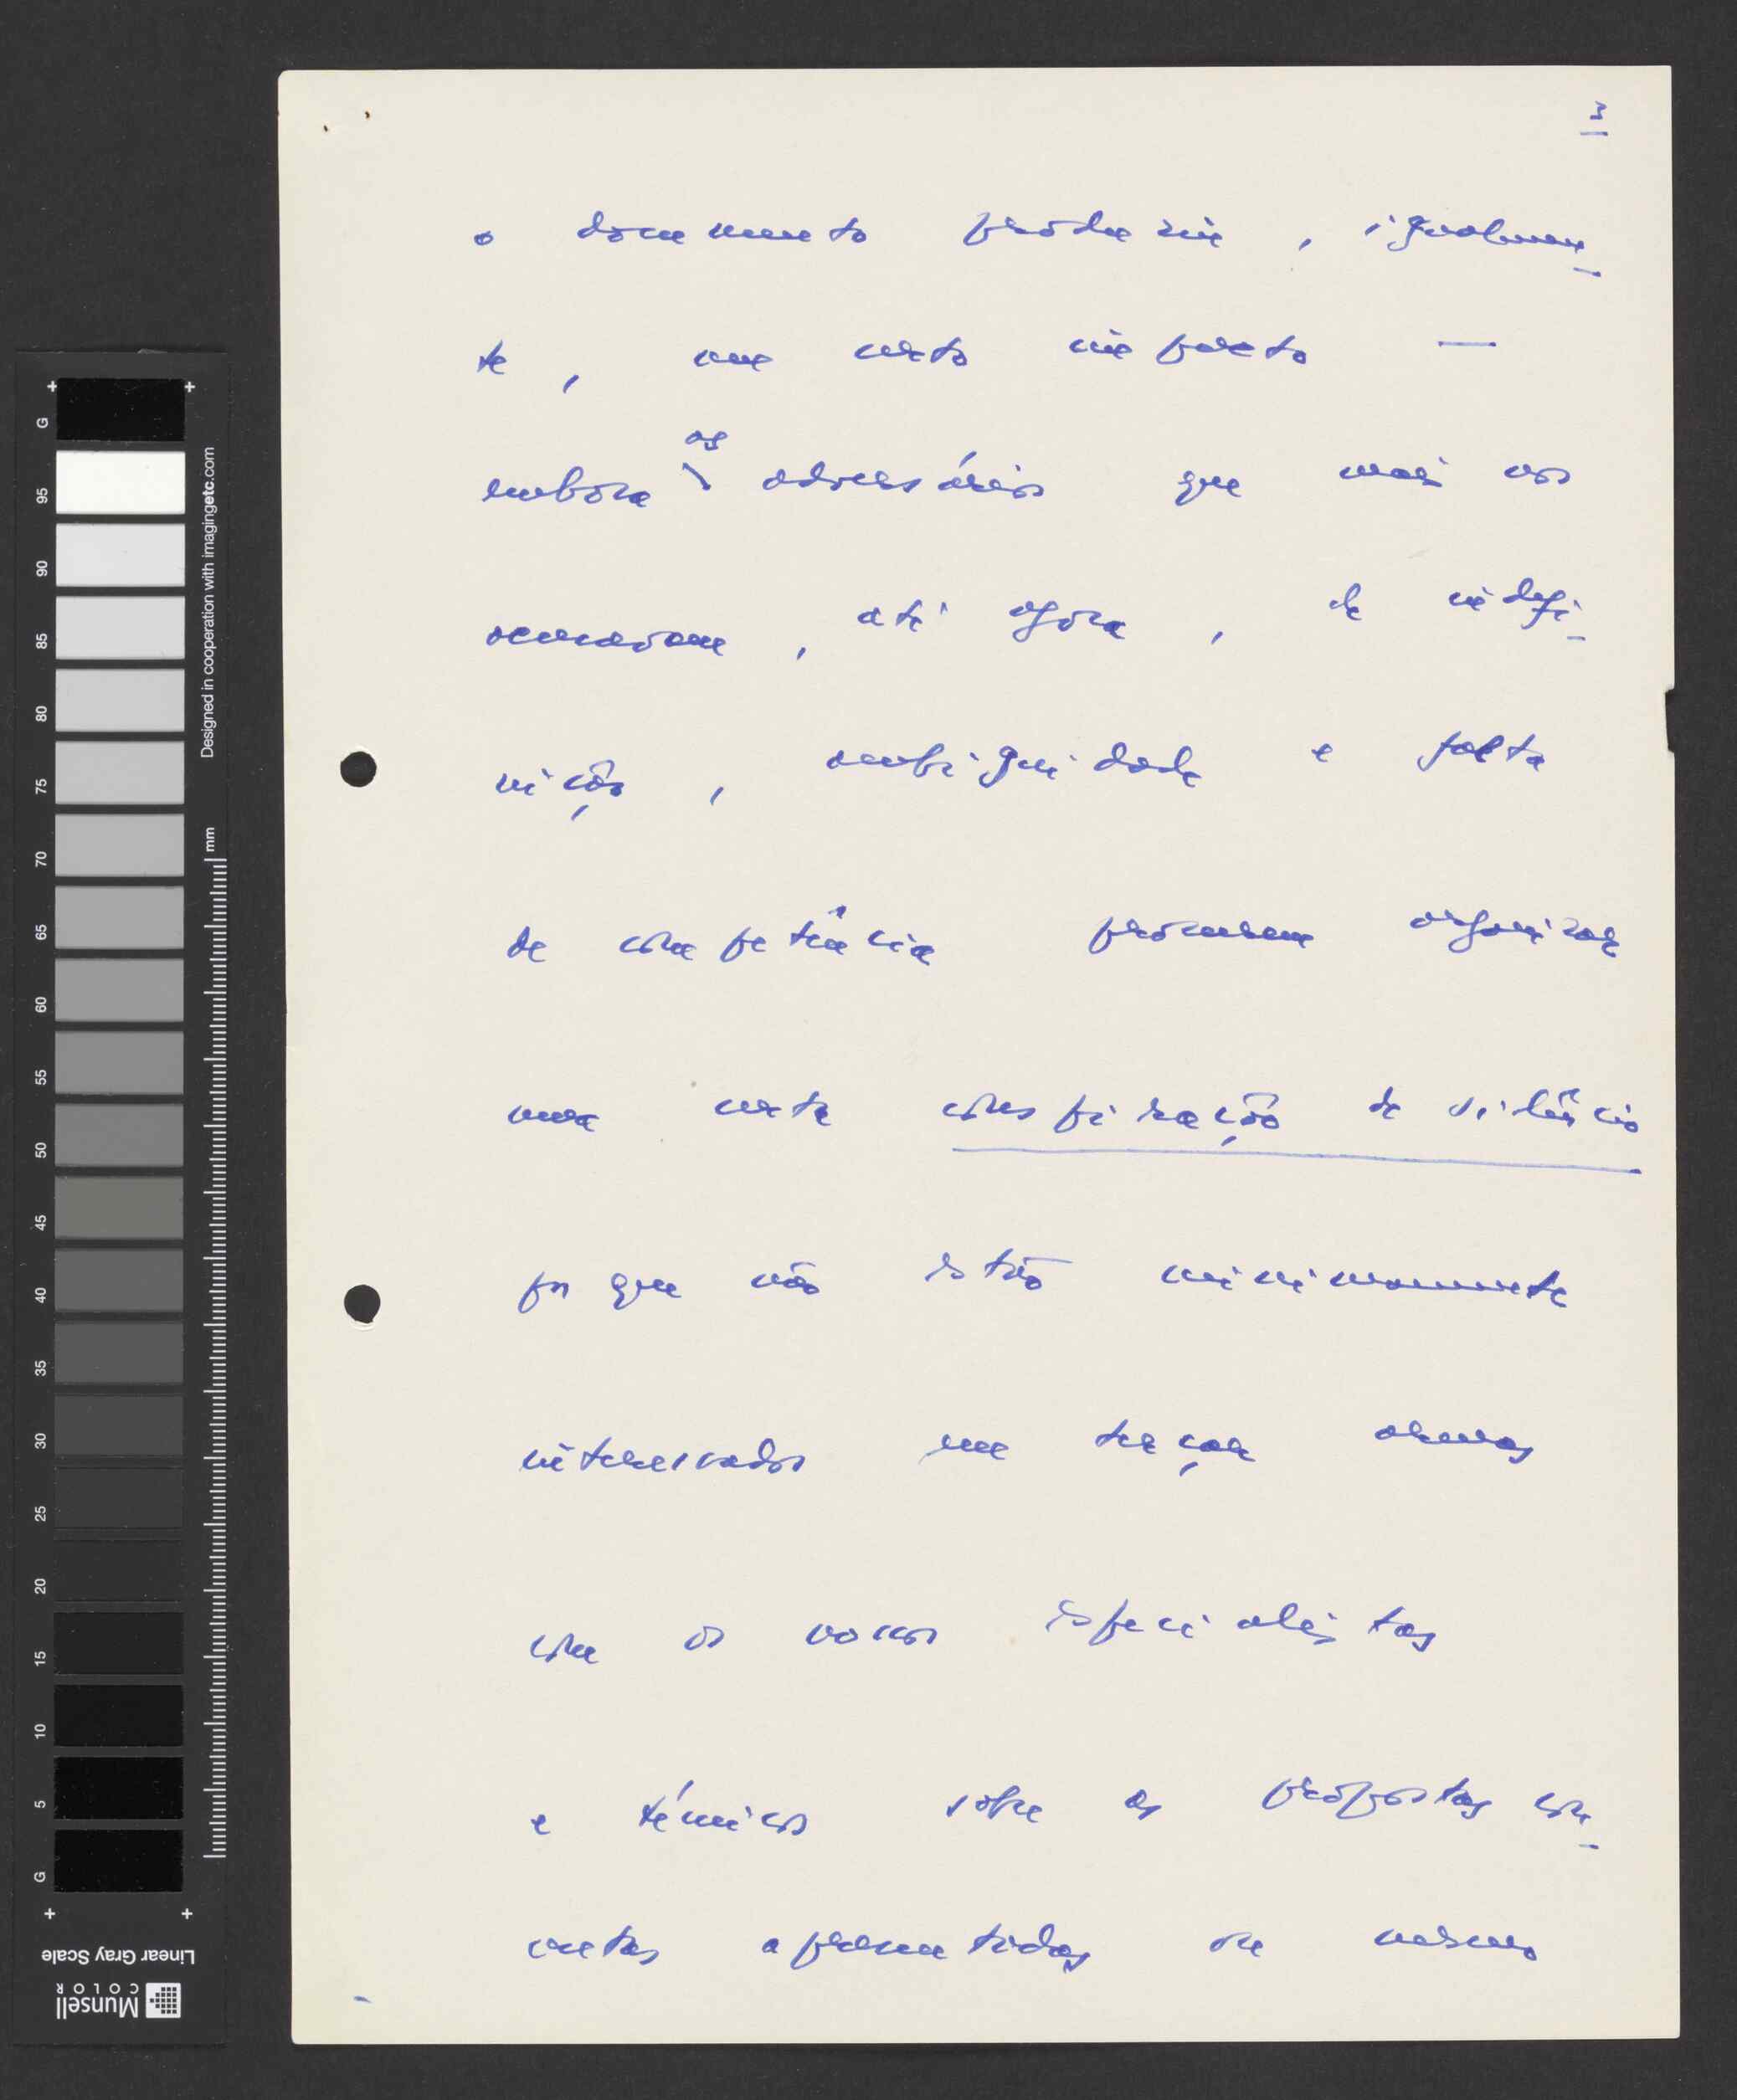 3
o documento produziu, igualmen-
te, um certo impacto —
embora os adversários que mais nos
acusavam, até agora, de indefi-
nições, ambiguidade e falta
de competência procurem organizar
uma certa conspiração de silêncio
porque não estão minimamente
interessados em terçar armas
com os nossos especialistas
e técnicos sobre as propostas con-
cretas apresentadas ou mesmo
G
95
90
85
80
75
70
65
60
55
50
45
40
35
30
25
20
15
10
5
G
Designed in cooperation with imagingetc.com
mm
Linear Gray Scale
Munsell
COLOR